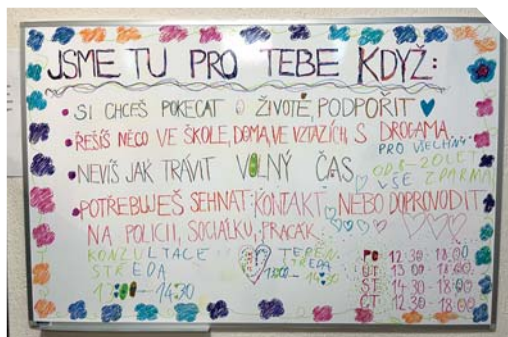 JSME TU PRO TEBE KDYŽ:
• SI CHCEŠ POKECAT O ŽIVOTĚ, PODPOŘIT
• ŘEŠÍŠ NĚCO VE ŠKOLE, DOMA, VE VZTAZÍCH, S DROGAMA
PRO VŠECHNY
• NEVÍŠ JAK TRÁVIT VOLNÝ ČAS
OD 6-20 LET
VŠE ZDARMA
• POTŘEBUJEŠ SEHNAT KONTAKT, NEBO DOPROVODIT
NA POLICII, SOCIÁLKU, PRACÁK
KONZULTACE
STŘEDA
13:00-14:30
TERÉN
STŘEDA
13:00-14:30
PO 12:30-18:00
ÚT 13:00-18:00
ST 14:30-18:00
ČT 12:30-18:00